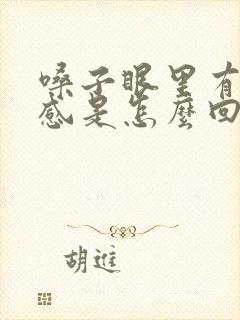 嗓子眼里有
感是怎麼回
胡進